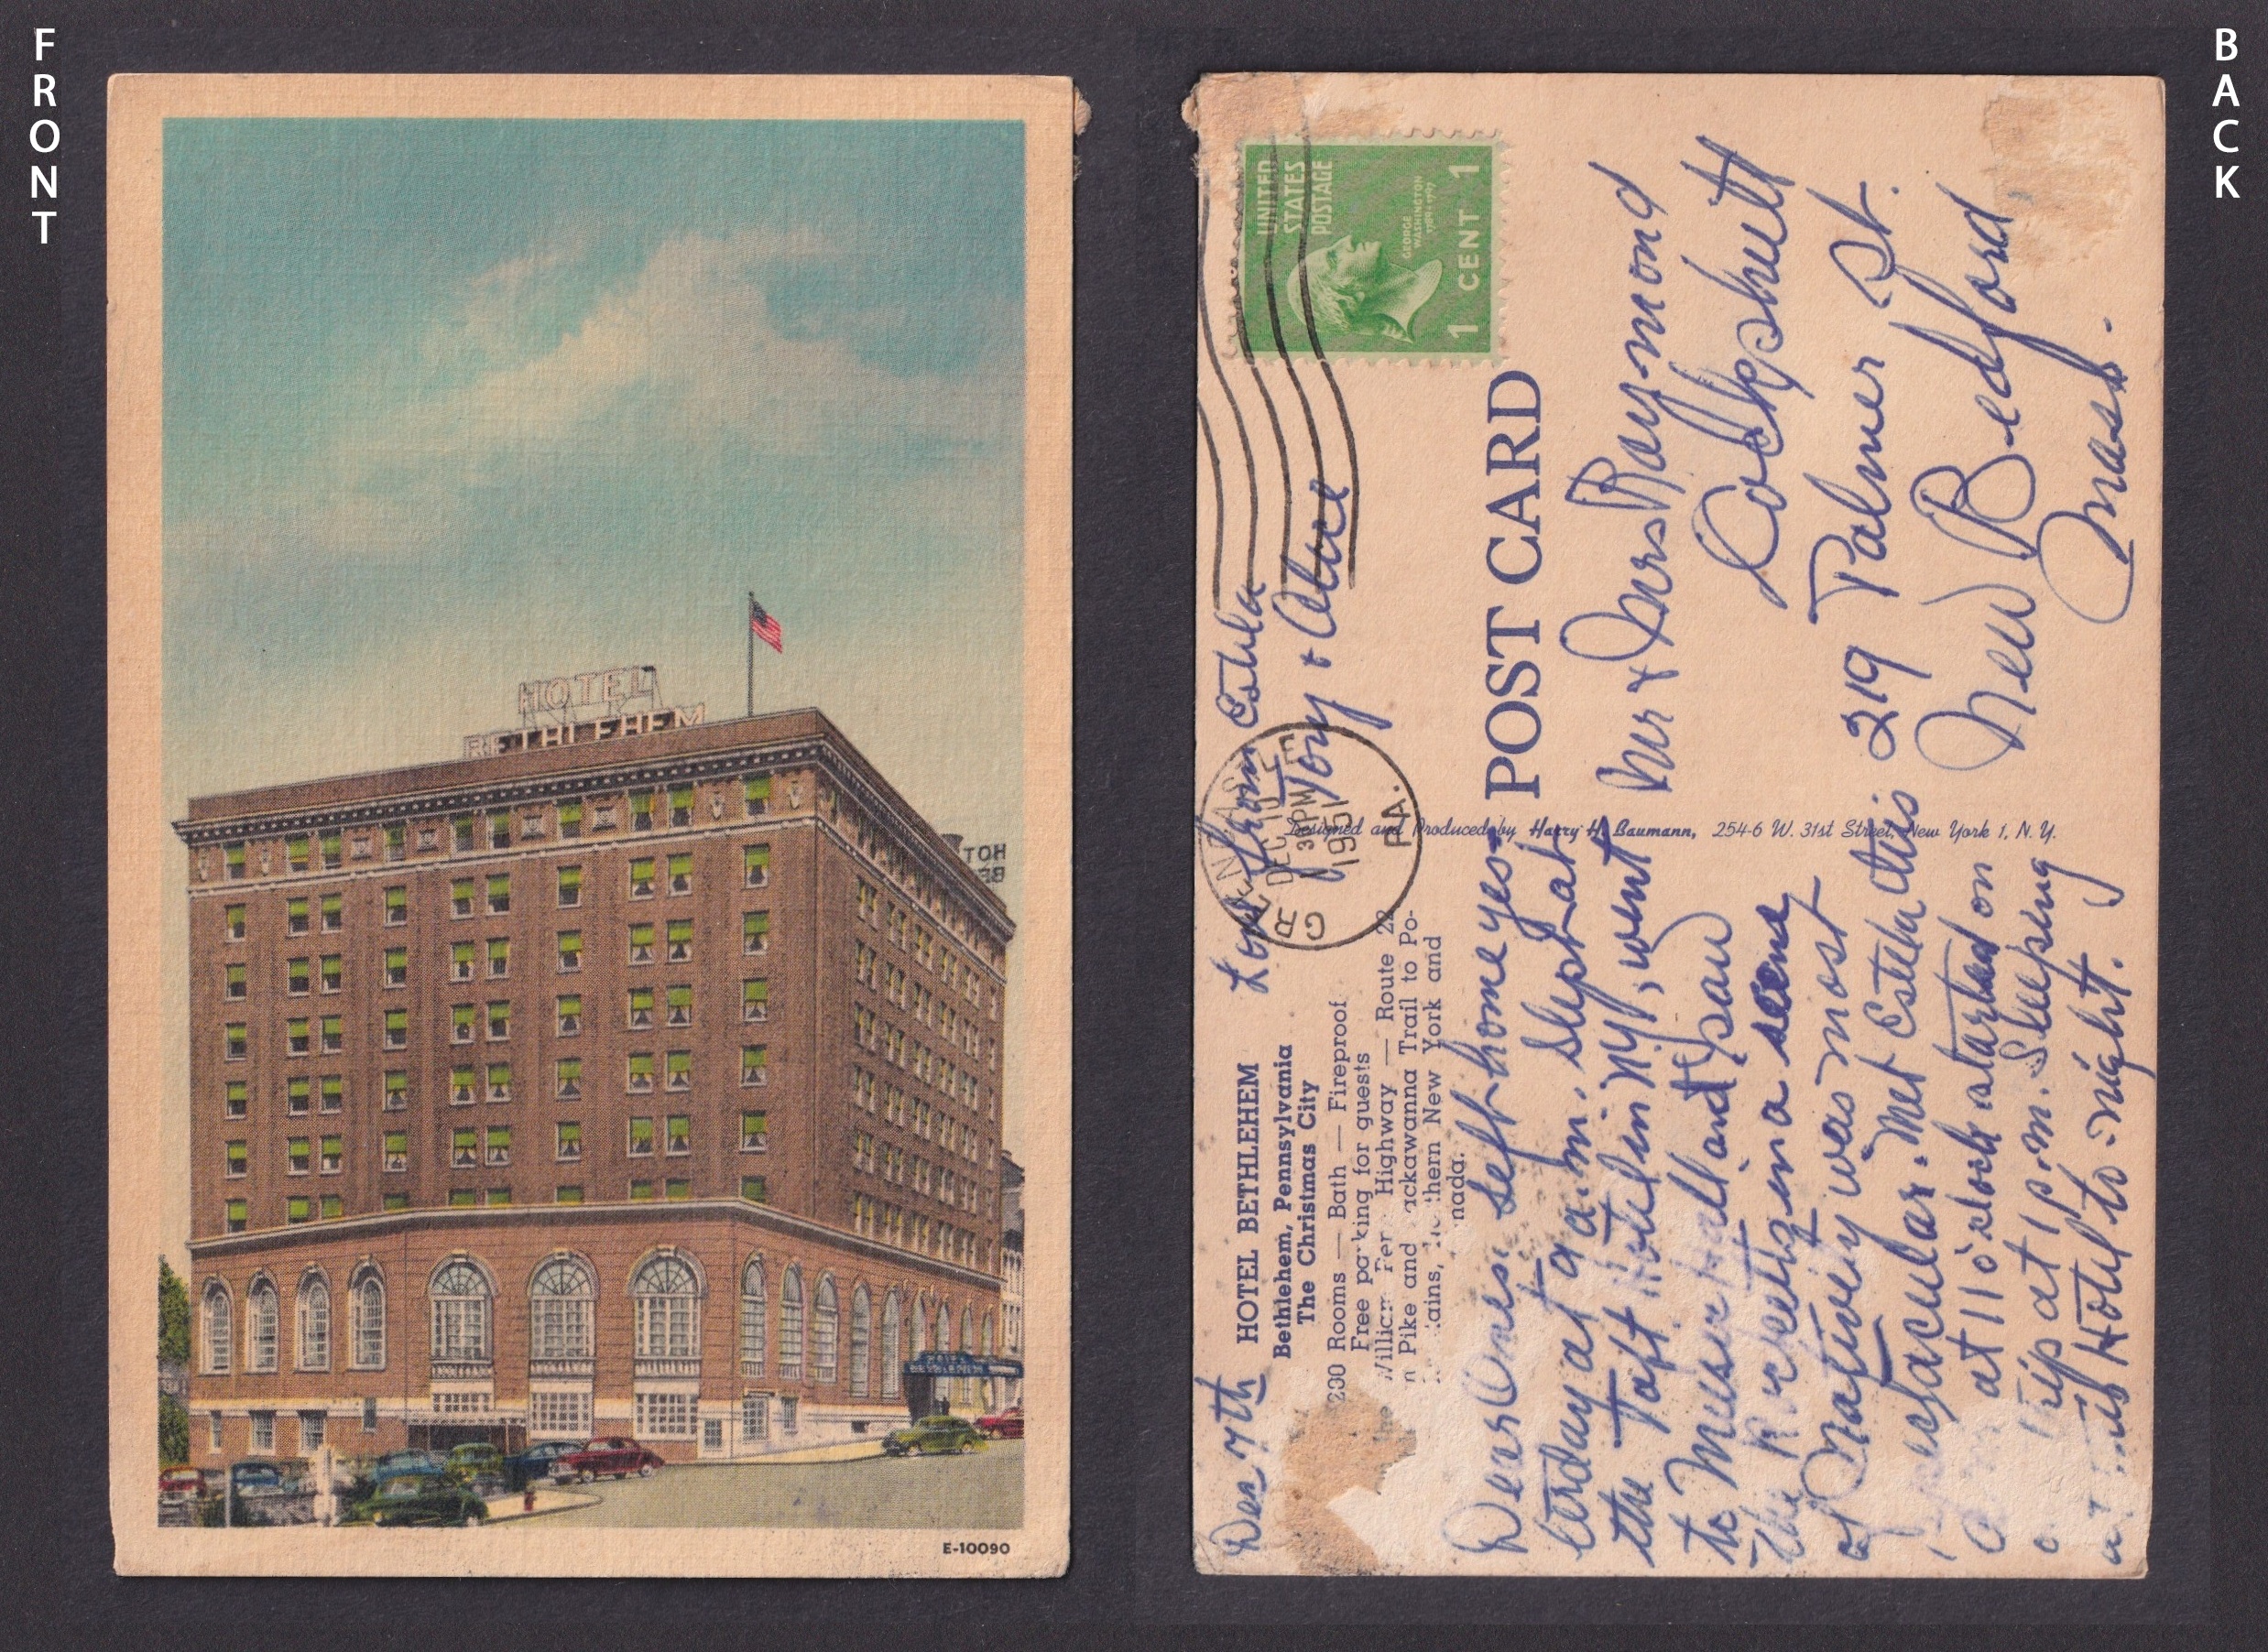 FRONT
HOTEL
BETHLEHEM
HOT
BE
E-10090
BACK
Dec 7th
HOTEL BETHLEHEM
Bethlehem, Pennsylvania
The Christmas City
200 Rooms — Bath — Fireproof
Free parking for guests
William Penn Highway — Route 22
Pike and Trail to Po-
thern New York and
nada.
Love from Estela
Tony + Alice
DEC 10
3 PM
1951
PA.
UNITED
STATES
POSTAGE
GEORGE
WASHINGTON
1789-1797
1 CENT 1
POST CARD
Designed and Produced by Harry H. Baumann, 254-6 W. 31st Street, New York 1, N. Y.
Dear Ones: Left home yes-
terday at 9 a.m. Slept at
the Taft Hotel in N.Y., went
to Music Hall and saw
the Rockettes in a scene
of Nativity was most
spectacular. Met Estela this
at 11 o'clock started on
trip at 1 p.m. Sleeping
at this Hotel to-night.
Mr + Mrs Raymond
Cockshutt
219 Palmer St.
New Bedford
Mass.